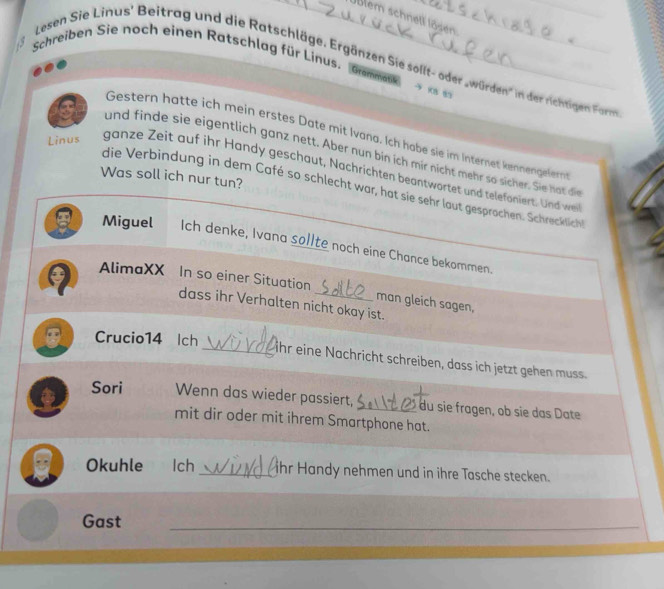 schnell lösen.
zurück rufen
Lesen Sie Linus' Beitrag und die Ratschläge. Ergänzen Sie sollt- oder „würden" in der richtigen Form.
Schreiben Sie noch einen Ratschlag für Linus. Grammatik → KB B3
Gestern hatte ich mein erstes Date mit Ivana. Ich habe sie im Internet kennengelernt
und finde sie eigentlich ganz nett. Aber nun bin ich mir nicht mehr so sicher. Sie hat die
Linus ganze Zeit auf ihr Handy geschaut, Nachrichten beantwortet und telefoniert. Und weil
die Verbindung in dem Café so schlecht war, hat sie sehr laut gesprochen. Schrecklich!
Was soll ich nur tun?
Miguel Ich denke, Ivana sollte noch eine Chance bekommen.
AlimaXX In so einer Situation sollte man gleich sagen,
dass ihr Verhalten nicht okay ist.
Crucio14 Ich würde ihr eine Nachricht schreiben, dass ich jetzt gehen muss.
Sori Wenn das wieder passiert, solltest du sie fragen, ob sie das Date
mit dir oder mit ihrem Smartphone hat.
Okuhle Ich würde ihr Handy nehmen und in ihre Tasche stecken.
Gast